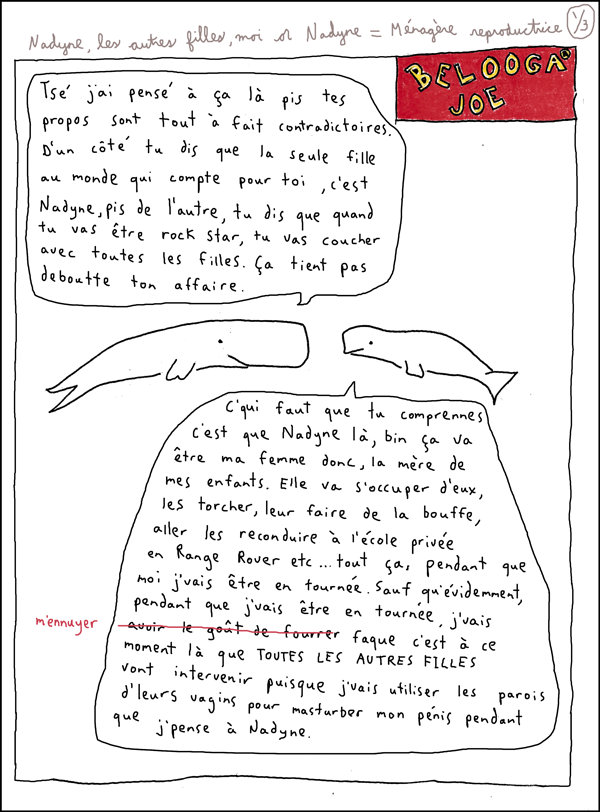 Nadyne, les autres filles, moi et Nadyne = Ménagère reproductrice 1/3
BELOOGA
JOE
Tsé j'ai pensé à ça là pis tes
propos sont tout à fait contradictoires.
D'un côté tu dis que la seule fille
au monde qui compte pour toi, c'est
Nadyne, pis de l'autre, tu dis que quand
tu vas être rock star, tu vas coucher
avec toutes les filles. Ça tient pas
deboutte ton affaire.
C'qui faut que tu comprennes
c'est que Nadyne là, bin ça va
être ma femme donc, la mère de
mes enfants. Elle va s'occuper d'eux,
les torcher, leur faire de la bouffe,
aller les reconduire à l'école privée
en Range Rover etc... tout ça, pendant que
moi j'vais être en tournée. Sauf qu'évidemment,
pendant que j'vais être en tournée, j'vais
m'ennuyer
avoir le goût de fourrer faque c'est à ce
moment là que TOUTES LES AUTRES FILLES
vont intervenir puisque j'vais utiliser les parois
d'leurs vagins pour masturber mon pénis pendant
que j'pense à Nadyne.